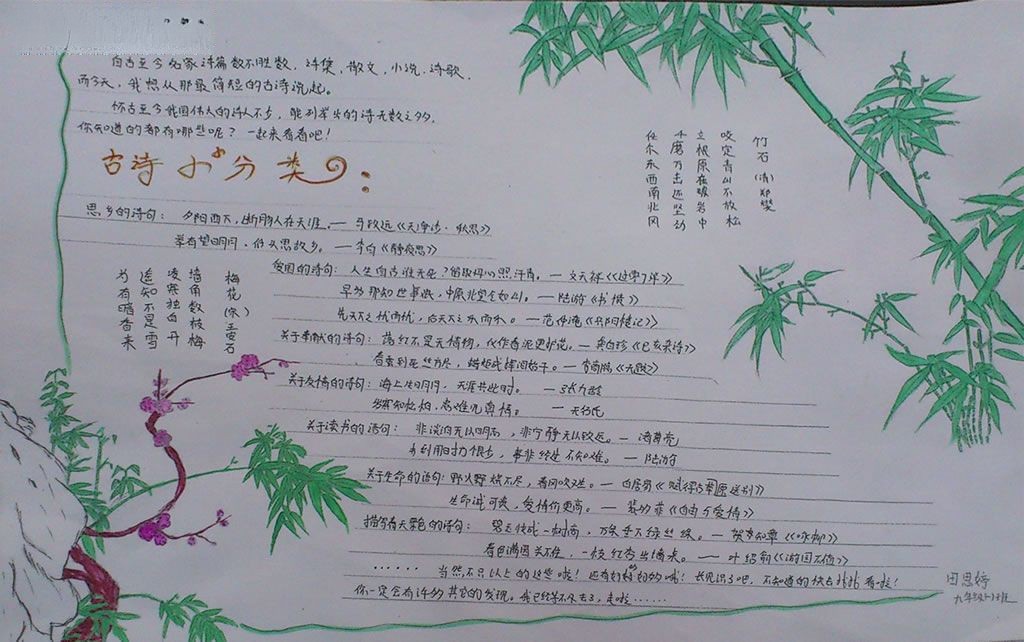 自古至今名家诗篇数不胜数，诗集，散文，小说，诗歌，
而今天，我想从那最简短的古诗说起。
怀古至今我国伟大的诗人不少，能列举出的诗无数之多，
你知道的都有哪些呢？一起来看看吧！
古诗小分类：
竹石（清）郑燮
咬定青山不放松
立根原在破岩中
千磨万击还坚劲
任尔东西南北风
思乡的诗句：夕阳西下，断肠人在天涯。—马致远《天净沙·秋思》
举有望明月，低头思故乡。—李白《静夜思》
梅花（宋）王安石
墙角数枝梅
凌寒独自开
遥知不是雪
为有暗香来
爱国的诗句：人生自古谁无死？留取丹心照汗青。—文天祥《过零丁洋》
早岁那知世事艰，中原北望气如山。—陆游《书愤》
先天下之忧而忧，后天下之乐而乐。—范仲淹《岳阳楼记》
关于奉献的诗句：落红不是无情物，化作春泥更护花。—龚自珍《己亥杂诗》
春蚕到死丝方尽，蜡炬成灰泪始干。—李商隐《无题》
关于友情的诗句：海上生明月，天涯共此时。—张九龄
岁寒知松柏，患难见真情。—无名氏
关于读书的语句：非淡泊无以明志，非宁静无以致远。—诸葛亮
书到用时方恨少，事非经过不知难。—陆游
关于生命的语句：野火烧不尽，春风吹又生。—白居易《赋得古草原送别》
生命诚可贵，爱情价更高。—裴多菲《自由与爱情》
描写春天景色的诗句：碧玉妆成一树高，万条垂下绿丝绦。—贺知章《咏柳》
春色满园关不住，一枝红杏出墙来。—叶绍翁《游园不值》
······当然不只以上的这些啦！还有好多好多的哦！长见识了吧，不知道的快去找找看啦！
你一定会有许多其它的发现。我已经等不及去了，走啦······
田思婷
九年级